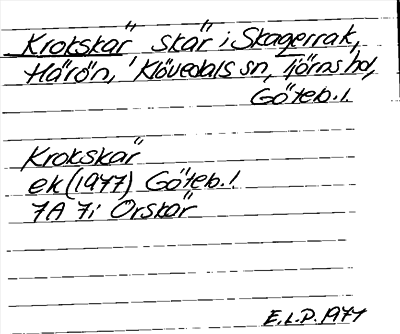 Krokskär skär i Skagerrak,
Härön, Klövedals sn, Tjörns hd,
Göteb. l.
Krokskär
ek (1977) Göteb. l.
7A 7i Orskär
E.L.P. 1977